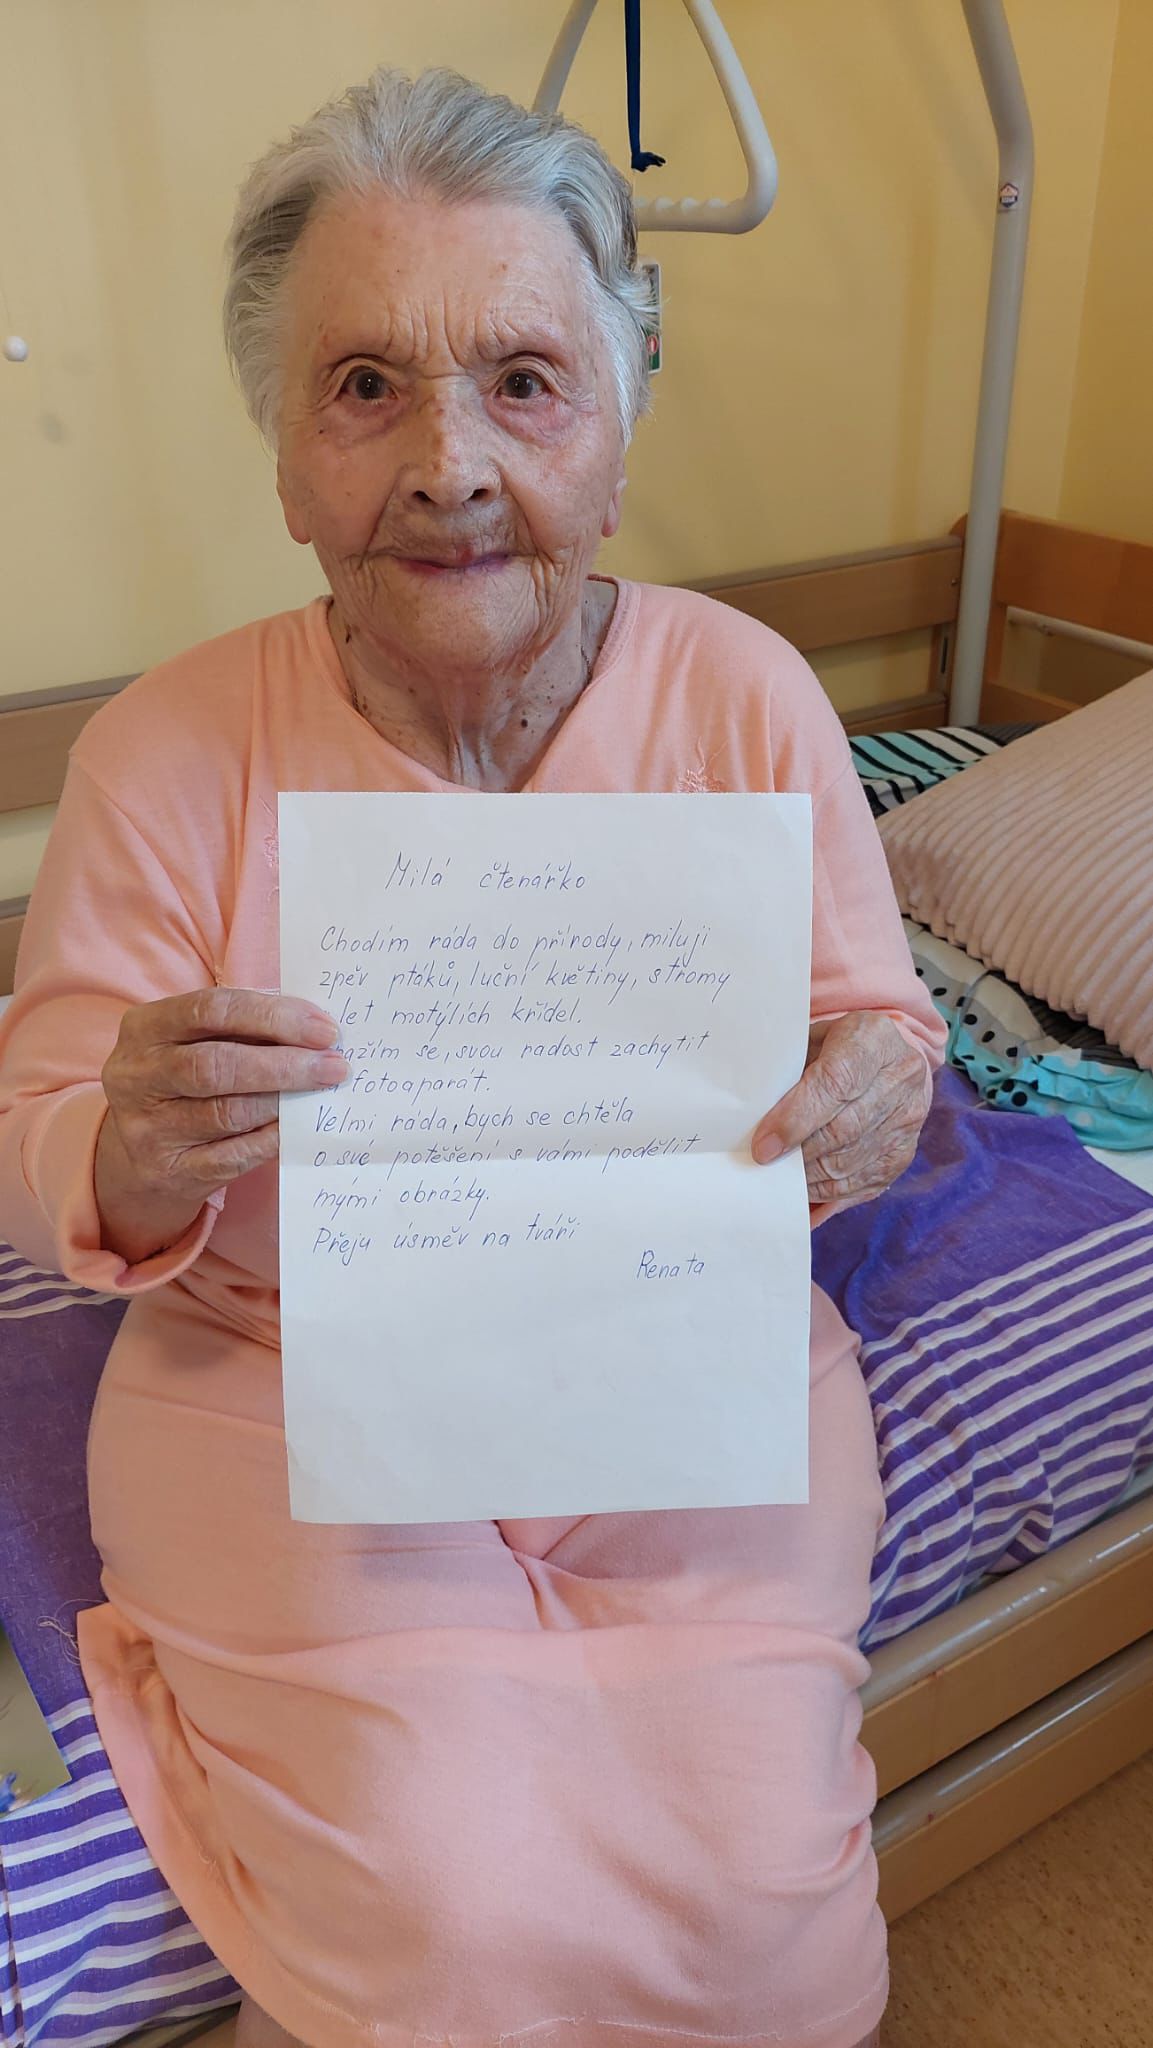 Milá čtenářko
Chodím ráda do přírody, miluji
zpěv ptáků, luční květiny, stromy
let motýlích křídel.
se, svou radost zachytit
fotoaparát.
Velmi ráda, bych se chtěla
o své potěšení s vámi podělit
mými obrázky.
Přeju úsměv na tváři
Renata